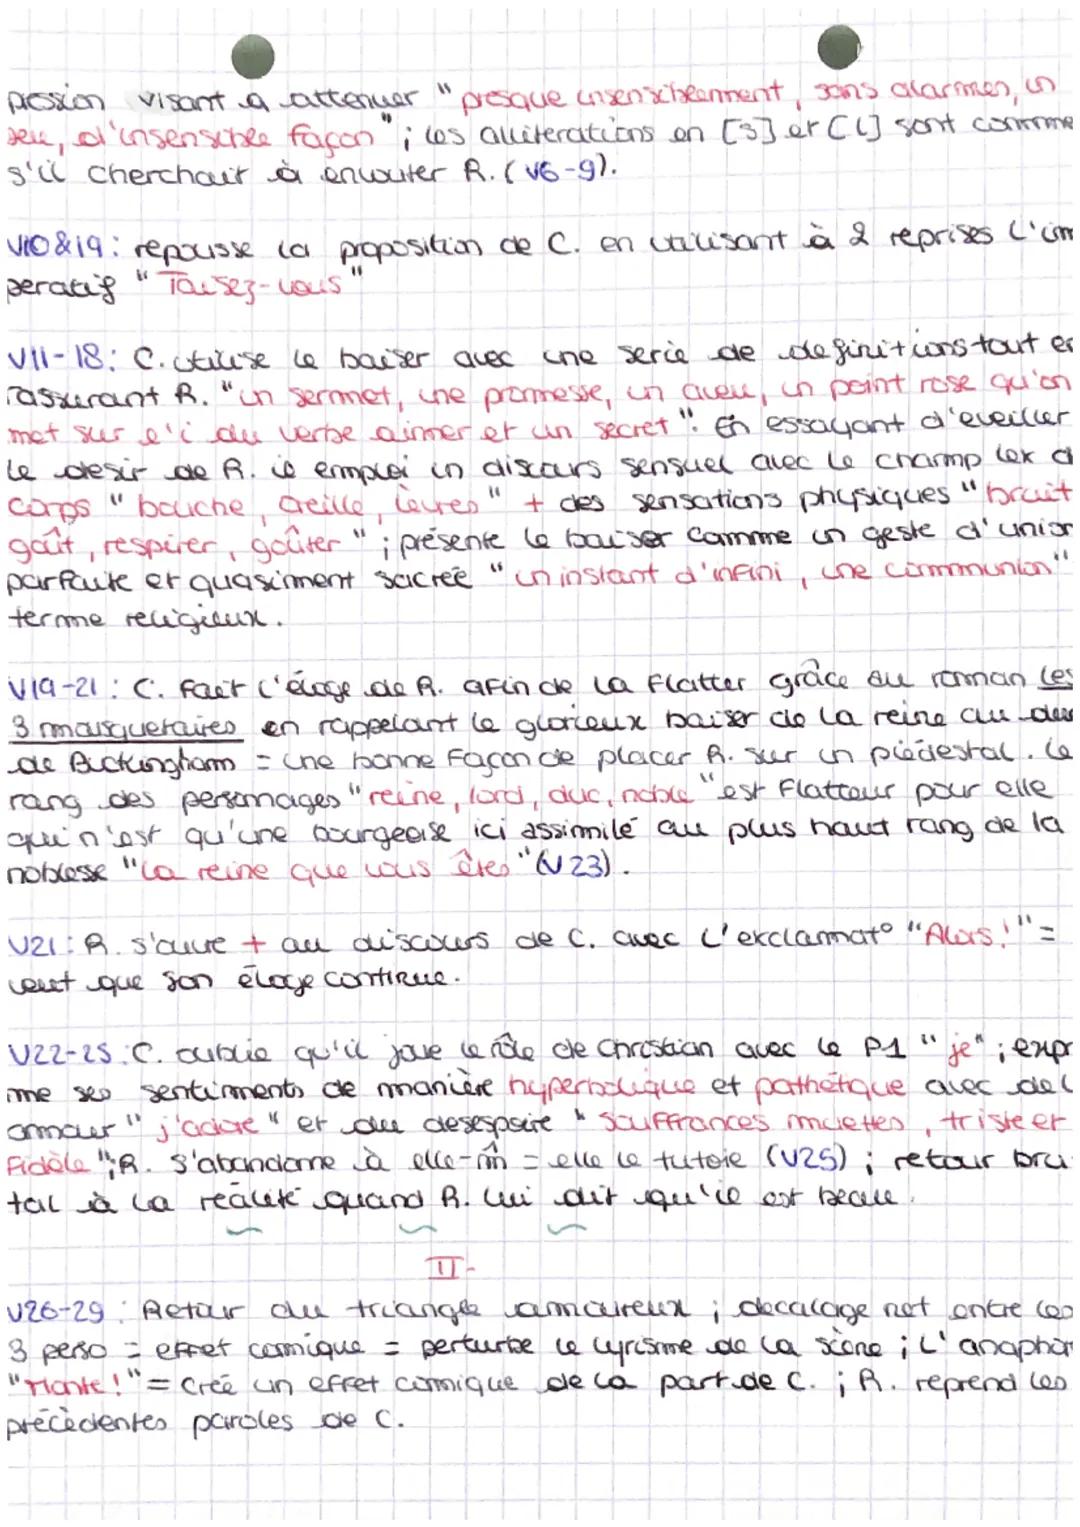 pression visant a attenuer "presque insensiblement, sans alarmes, un
peu, d'insensible façon"; les alliterations en [s] et [l] sont comme
s'il cherchait à envouter R. (V6-9).
V10&19: repousse la proposition de C. en utilisant à 2 reprises l'im
peratif "Taisez-vous"
V11-18: C. utilise le baiser avec une serie de definitions tout en
rassurant R. "un serment, une promesse, un aveu, un point rose qu'on
met sur l'i du verbe aimer et un secret". En essayant d'eveiller
le desir de R. il emploi un discours sensuel avec le champ lex d
corps "bouche, oreille, levres" + des sensations physiques "bruit
goût, respirer, goûter"; présente le baiser comme un geste d'union
parfaite et quasiment sacrée "un instant d'infini, une communion"
terme religieux.
V19-21: C. fait l'éloge de R. afin de la flatter grâce au roman Les
3 mousquetaires en rappelant le glorieux baiser de la reine au duc
de Buckingham = une bonne façon de placer R. sur un piédestal. Le
rang des personnages "reine, lord, duc, noble" est flatteur pour elle
qui n'est qu'une bourgeoise ici assimilé au plus haut rang de la
noblesse "la reine que vous êtes" (V23).
V21: R. s'ouvre + au discours de C. avec l'exclamat° "Alors!" =
veut que son éloge continue.
V22-25: C. oublie qu'il joue le rôle de Christian avec le P1 "je"; expr
ime ses sentiments de manière hyperbolique et pathétique avec de l
amour "j'adore" et du desespoire "souffrances muettes, triste et
fidèle"; R. s'abandonne à elle-m̂ = elle le tutoie (V25); retour bru
tal à la réalité quand R. lui dit qu'il est beau.
II-
V26-29: Retour du triangle amoureux; decalage net entre les
3 perso = effet comique = perturbe le lyrisme de la scène; l'anaphor
"Monte!" = créé un effet comique de la part de C.; R. reprend les
précédentes paroles de C.